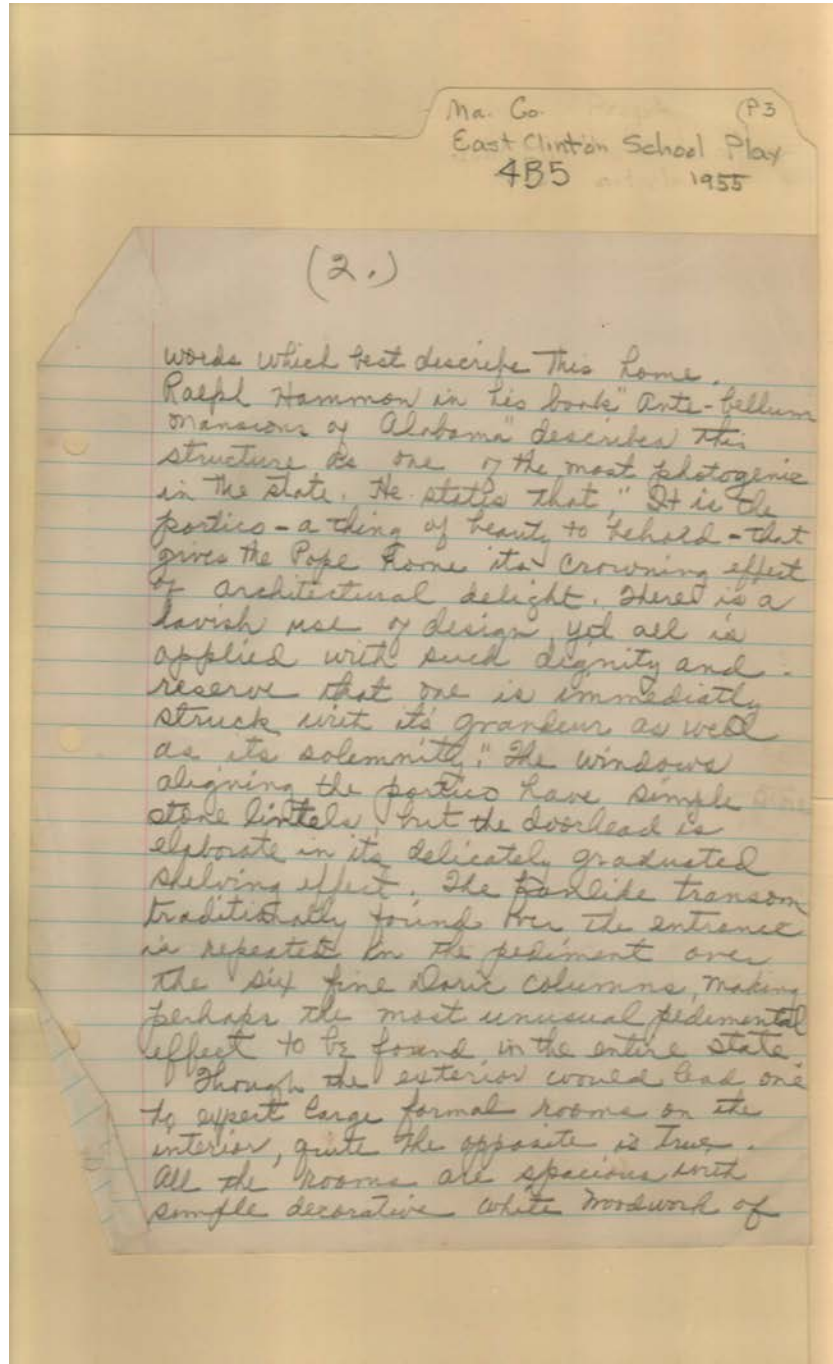 Ma. Co. (P3
East Clinton School Play
4B5 1955
(2.)
words which best describe this home.
Ralph Hammon in his book "Ante-bellum
Mansions of Alabama" describes this
structure as one of the most photogenic
in the state. He states that, "It is the
portico - a thing of beauty to behold - that
gives the Pope Home its crowning effect
of architectural delight. There is a
lavish use of design, yet all is
applied with such dignity and
reserve that one is immediatly
struck with it's grandeur as well
as its solemnity." The windows
aligning the portico have simple
stone lintels, but the doorhead is
elaborate in its delicately graduated
shelving effect. The fanlike transom
traditionally found over the entrance
is repeated in the pediment over
the six fine Doric columns, making
perhaps the most unusual pedimental
effect to be found in the entire state.
Though the exterior would lead one
to expect large formal rooms on the
interior, quite the opposite is true.
All the rooms are spacious with
simple decorative white woodwork of